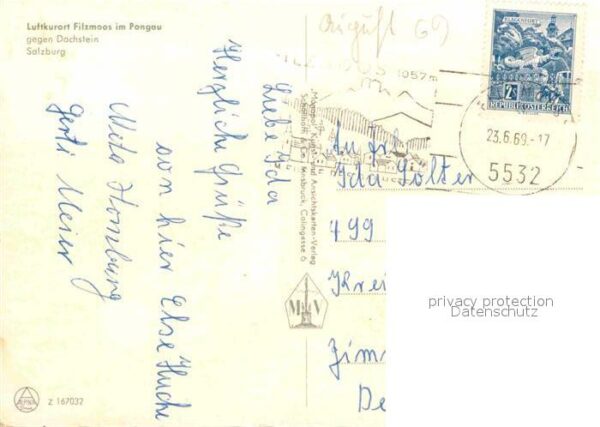 Luftkurort Filzmoos im Pongau
gegen Dachstein
Salzburg
August 69
1057m
2S
REPUBLIK ÖSTERREICH
23.6.69.-17
5532
Liebe Ida
Herzliche Grüße
von hier Else Huche
Meta Homburg
Gerti Meier
Monopol, Kunst- und Ansichtskarten-Verlag
Schöllhorn & Co., Innsbruck, Colingasse 6
MV
An Frl.
Ida Golter
499
Krei
Zim
De
privacy protection
Datenschutz
Z 167032